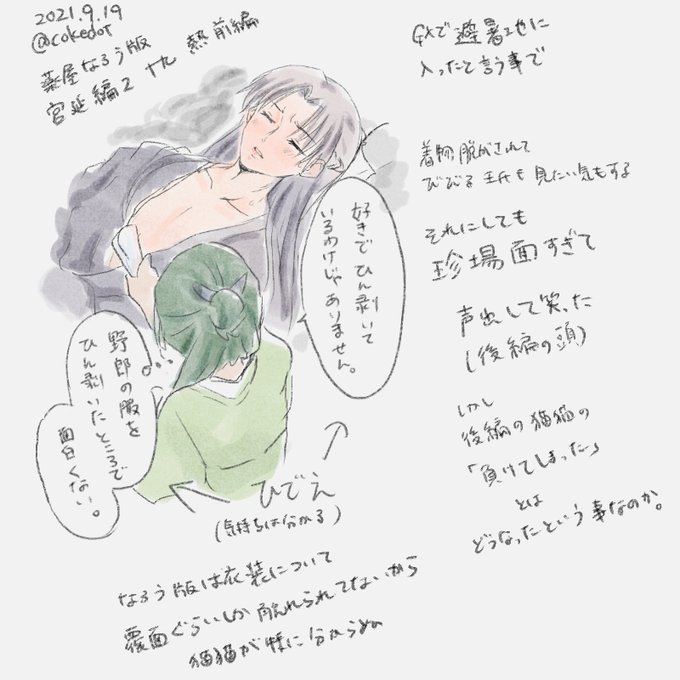 2021.9.19
@cokedot
薬屋なろう版
宮廷編2 十九 熱 前編
入ったと言う事で
着物脱がされて
びびる壬氏も見たい気もする
それにしても
珍場面すぎて
声出して笑った
(後編の頭)
しかし
後編の猫猫の
「負けてしまった」
とは
どうなったという事なのか。
好きでひん剥いて
いるわけじゃありません。
野郎の服を
ひん剥いたところで
面白くない。
ひでえ
(気持ちは分かる)
なろう版は衣装について
覆面ぐらいしか触れられてないから
猫猫が特に分からぬ